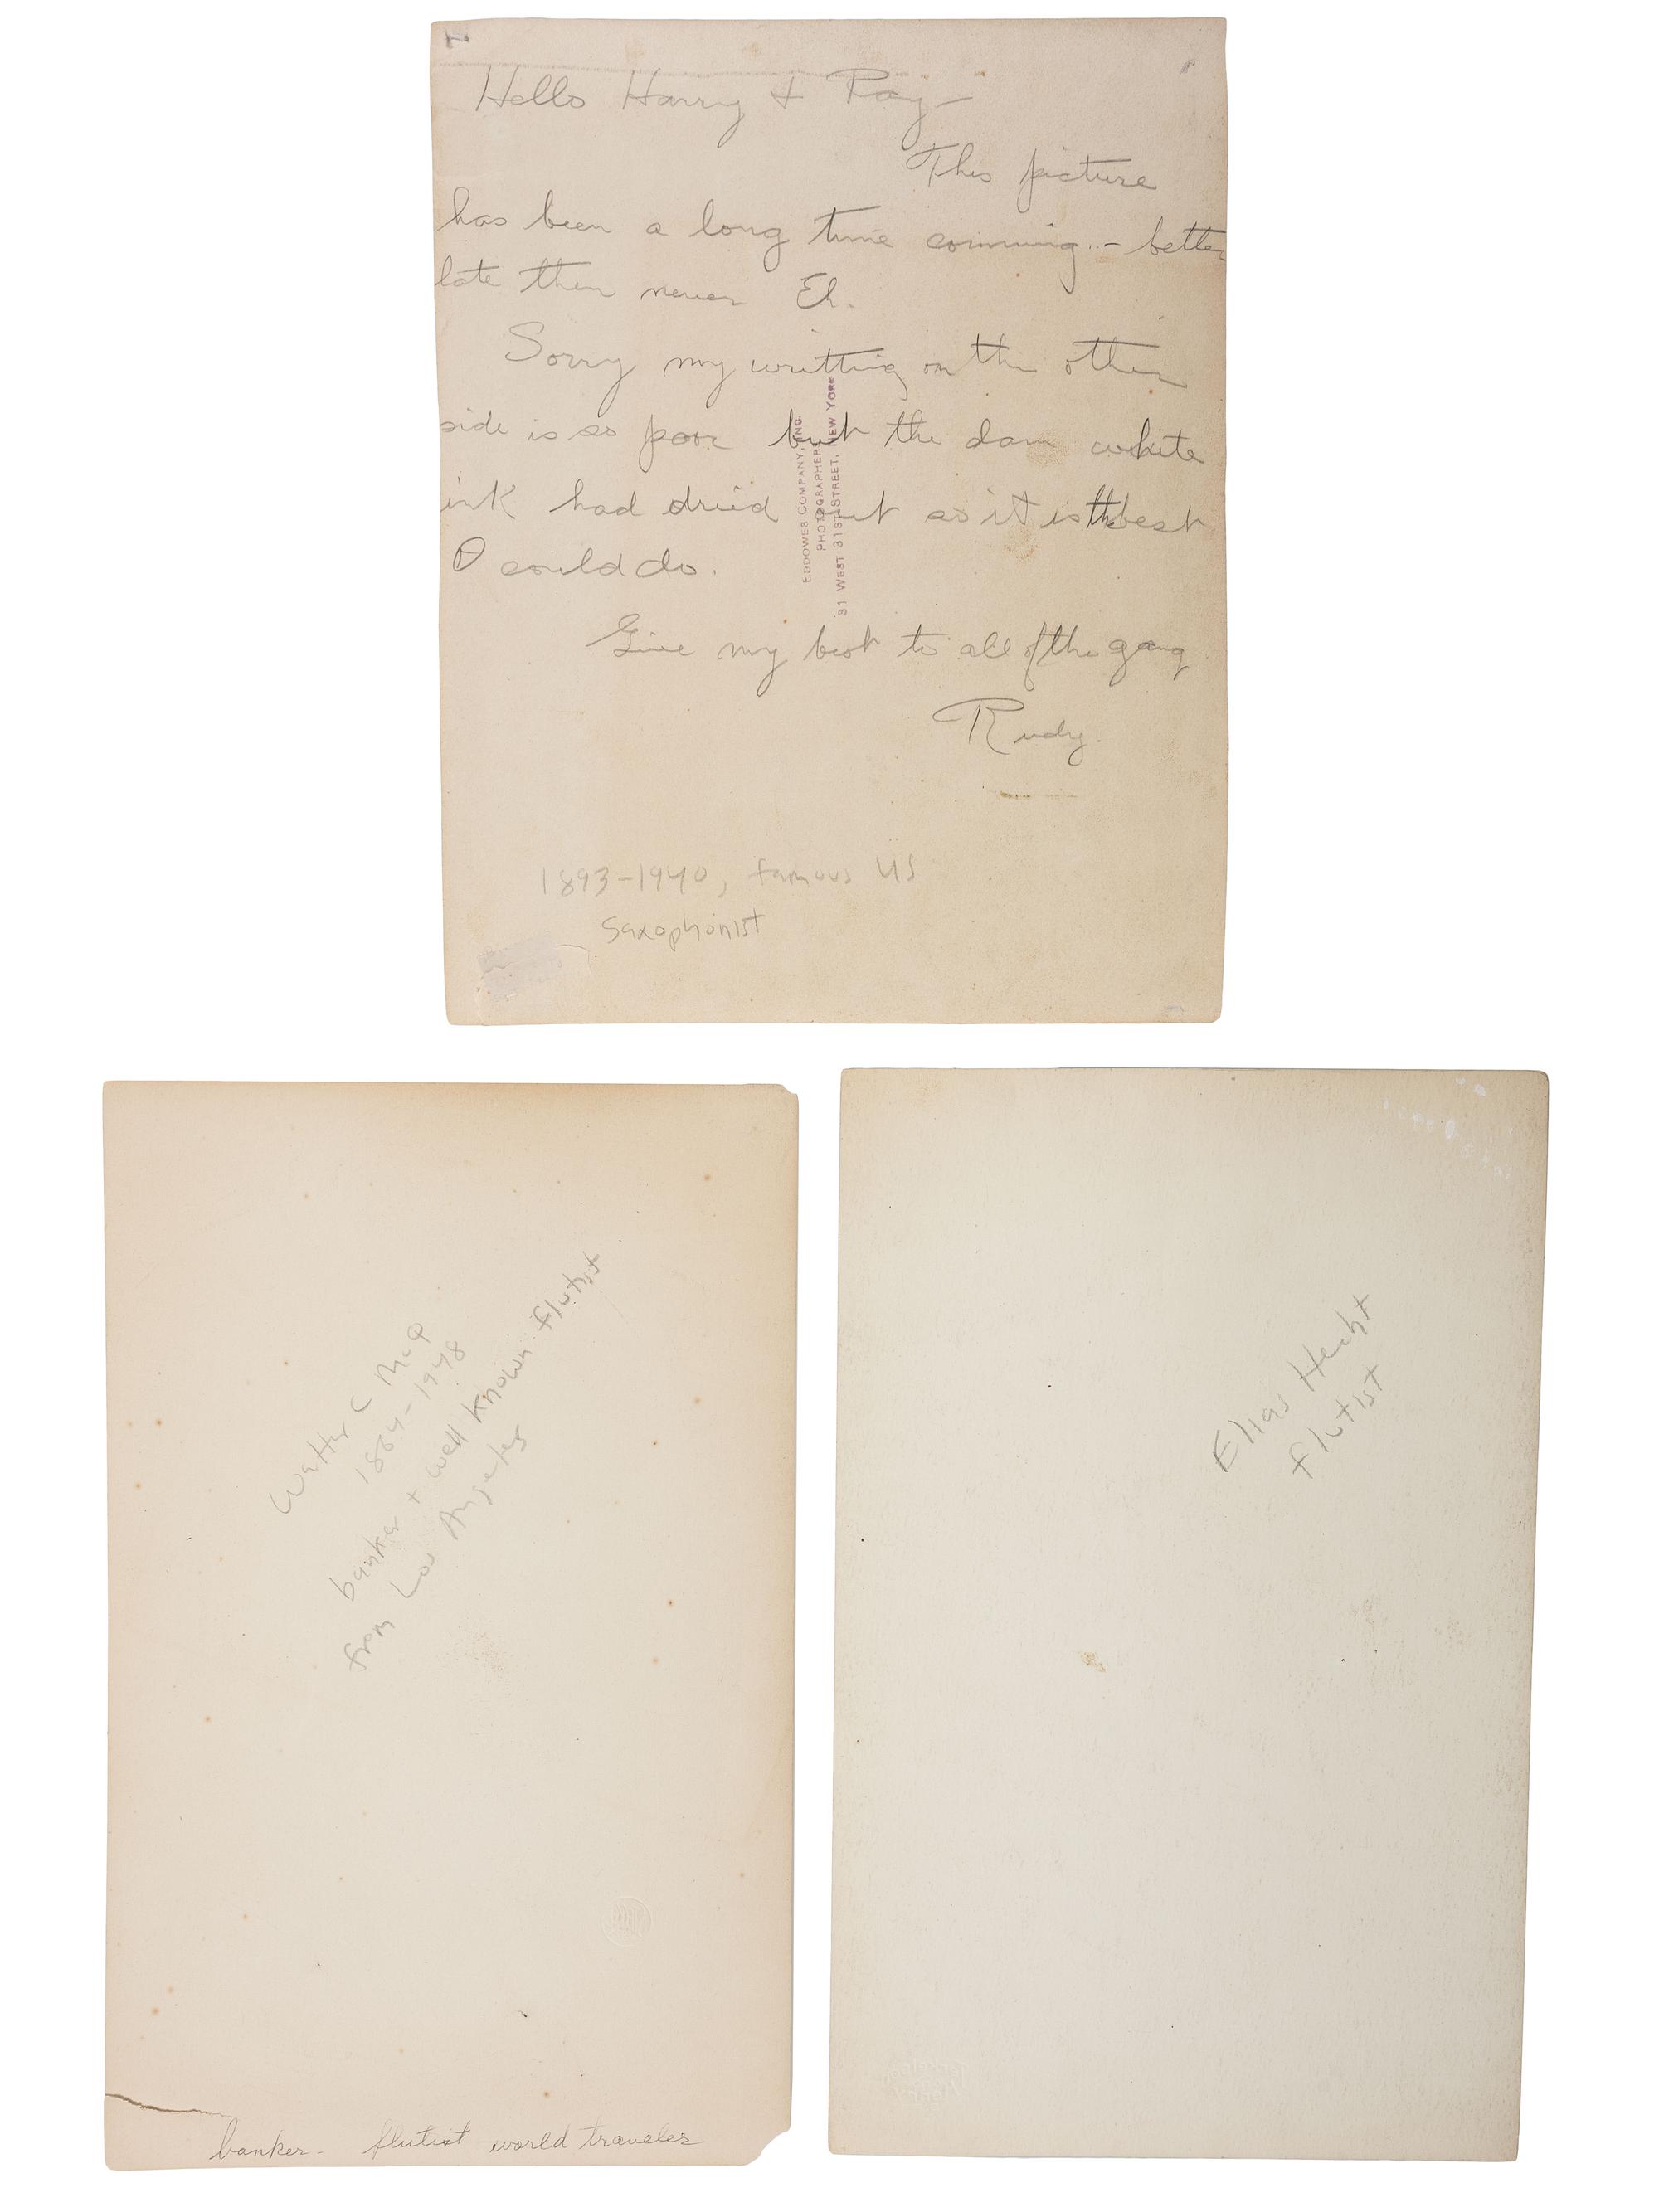 Hello Harry + Ray —
This picture
has been a long time comming.. — better
late then never Eh.
Sorry my writting on the other
side is so poor but the dam white
ink had dried out so it is the best
I could do.
Give my best to all of the gang
Rudy.
EDDOWES COMPANY, INC.
PHOTOGRAPHERS
31 WEST 31ST STREET, NEW YORK
1893-1940, famous US
saxophonist
Walter C
1864-1948
banker + well known flutist
from Los Angeles
banker - flutist world traveler
Elias Hecht
flutist